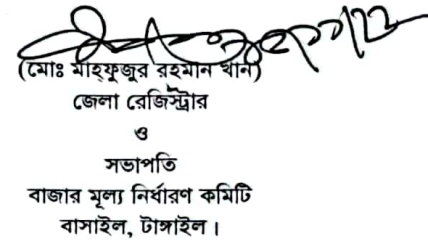 (মোঃ মাহ্ফুজুর রহমান খান)
জেলা রেজিস্ট্রার
ও
সভাপতি
বাজার মূল্য নির্ধারণ কমিটি
বাসাইল, টাঙ্গাইল।